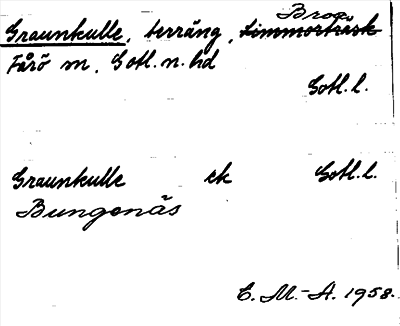 Broa
Graunkulle, terräng, Limmorträsk
Fårö sn. Gotl. n. hd
Gotl. l.
Graunkulle ek Gotl. l.
Bungenäs
E. M.-A. 1958.